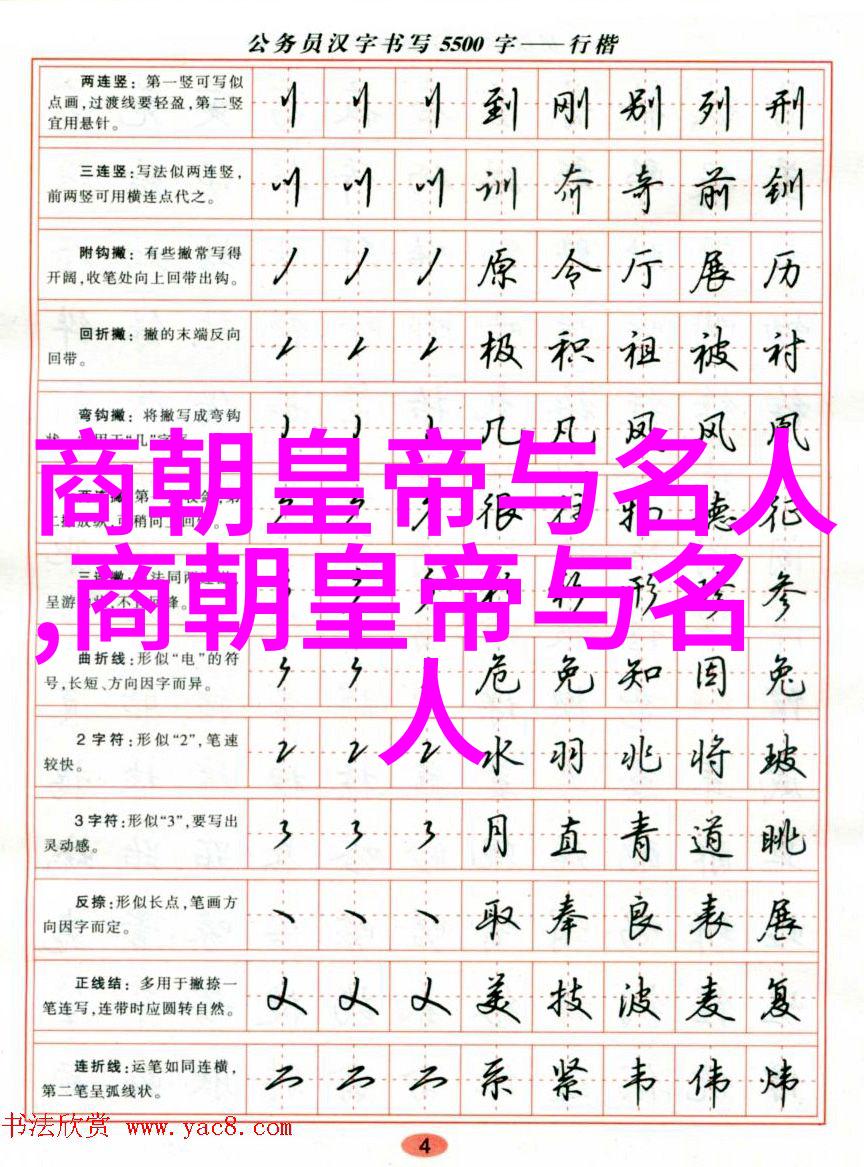 公务员汉字书写 5500 字——行楷
两连竖：第一竖可写似
点画,过渡线要轻盈,第二竖
宜用悬针。
到 刚 别 列 刑
三连竖:写法似两连竖,
前两竖可用横连点代之。
训 奔 奇 前 钏
附钩撇：有些撇常写得
开阔,收笔处向上回带出钩。
原 令 厅 展 历
回折撇：撇的末端反向
回带。
极 积 祖 被 衬
弯钩撇：将撇写成弯钩
几 凡 凤 风 夙
商朝皇帝与名人
很 往 物 德 征
,商朝皇帝与名
人
形 参
曲折线:形似“电”的符
号,长短、方向因字而异。
危 免 知 因 兔
2字符:形似“2”,笔速
较快。
2 2 2 水 羽 兆 将 玻
3字符:形似“3”,要写出
灵动感。
3 3 3 月 直 青 道 眺
反捺:形似长点,笔画方
向因字而定。
取 奉 良 表 展
正线结：多用于撇捺一
笔连写,连带时应圆转自然。
美 技 波 麦 复
连折线:运笔如同连横,
第二笔呈弧线状。
系 紧 韦 伟 炜
书法欣赏 www.yac8.com
4